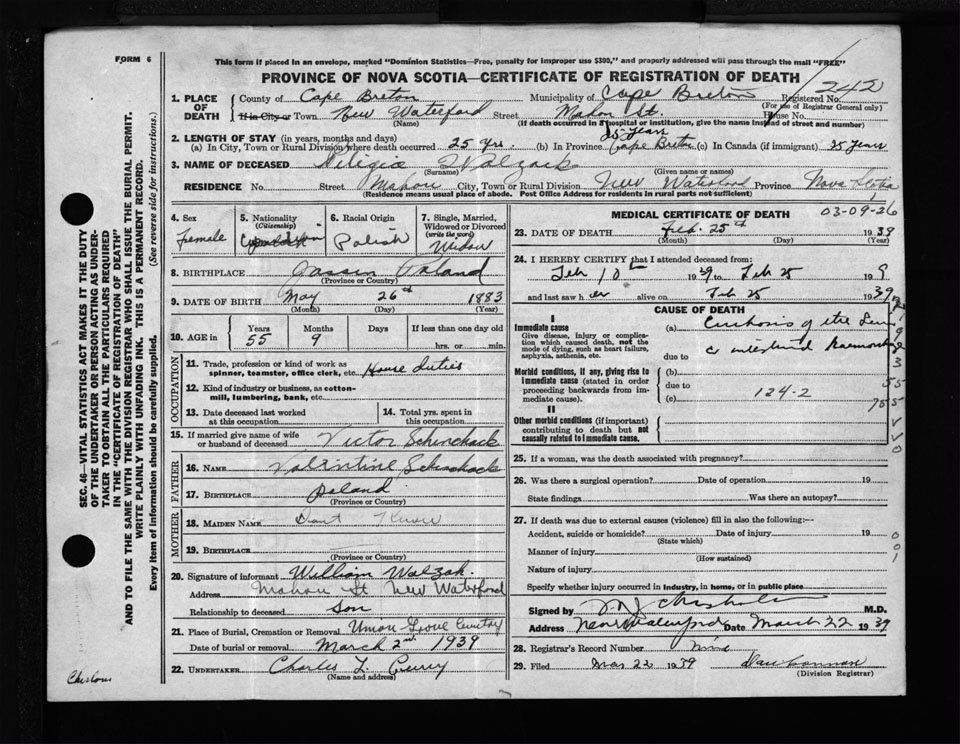 FORM 6
This form if placed in an envelope, marked "Dominion Statistics—Free, penalty for improper use $300," and properly addressed will pass through the mail "FREE"
PROVINCE OF NOVA SCOTIA—CERTIFICATE OF REGISTRATION OF DEATH
242
1. PLACE OF DEATH County of Cape Breton Municipality of Cape Breton Registered No.
(For use of Registrar General only)
If in City or Town New Waterford Street Mahon St. House No.
(Name) (If death occurred in a hospital or institution, give the name instead of street and number)
2. LENGTH OF STAY (in years, months and days) 25 years
(a) In City, Town or Rural Division where death occurred 25 yrs. (b) In Province Cape Breton (c) In Canada (if immigrant) 25 years
3. NAME OF DECEASED Walzack
(Surname) (Given name or names)
RESIDENCE No. Street Mahon City, Town or Rural Division New Waterford Province Nova Scotia
(Residence means usual place of abode. Post Office Address for residents in rural parts not sufficient)
4. Sex Female
5. Nationality (Citizenship)
6. Racial Origin Polish
7. Single, Married, Widowed or Divorced (write the word) Widow
8. BIRTHPLACE Poland
(Province or Country)
9. DATE OF BIRTH May 26th 1883
(Month) (Day) (Year)
10. AGE in Years 55 Months 9 Days If less than one day old
hrs. or min.
OCCUPATION
11. Trade, profession or kind of work as spinner, teamster, office clerk, etc. House Duties
12. Kind of industry or business, as cotton-mill, lumbering, bank, etc.
13. Date deceased last worked at this occupation
14. Total yrs. spent in this occupation
15. If married give name of wife or husband of deceased Victor Schinchack
FATHER
16. NAME Valentine Schinchack
17. BIRTHPLACE Poland
(Province or Country)
MOTHER
18. MAIDEN NAME Dont Know
19. BIRTHPLACE
(Province or Country)
20. Signature of informant William Walzak
Address Mahon St New Waterford
Relationship to deceased Son
21. Place of Burial, Cremation or Removal Union Grove Cemetery
Date of burial or removal March 2nd 1939
22. UNDERTAKER Charles L. Curry
(Name and address)
MEDICAL CERTIFICATE OF DEATH
03-09-26
23. DATE OF DEATH Feb. 25th 1939
(Month) (Day) (Year)
24. I HEREBY CERTIFY that I attended deceased from:
Feb 10th 1939 to Feb 25 1939
and last saw her alive on Feb 25 1939
CAUSE OF DEATH
I
Immediate cause
Give disease, injury or complication which caused death, not the mode of dying, such as heart failure, asphyxia, asthenia, etc.
(a) Cirrhosis of the Liver
due to c intestinal haemorrhage
Morbid conditions, if any, giving rise to immediate cause (stated in order proceeding backwards from immediate cause).
(b)
due to
(c) 124-2
II
Other morbid conditions (if important) contributing to death but not causally related to immediate cause.
25. If a woman, was the death associated with pregnancy?
26. Was there a surgical operation? Date of operation 19
State findings Was there an autopsy?
27. If death was due to external causes (violence) fill in also the following:—
Accident, suicide or homicide? Date of injury 19
(State which)
Manner of injury
(How sustained)
Nature of injury
Specify whether injury occurred in industry, in home, or in public place
Signed by Chisholm M.D.
Address New Waterford Date March 22 1939
28. Registrar's Record Number Nine
29. Filed Mar 22 1939 Dan Cannon
(Division Registrar)
SEC. 46—VITAL STATISTICS ACT MAKES IT THE DUTY
OF THE UNDERTAKER OR PERSON ACTING AS UNDERTAKER
TO OBTAIN ALL THE PARTICULARS REQUIRED
IN THE "CERTIFICATE OF REGISTRATION OF DEATH"
AND TO FILE THE SAME WITH THE DIVISION REGISTRAR WHO SHALL ISSUE THE BURIAL PERMIT.
WRITE PLAINLY WITH UNFADING INK. THIS IS A PERMANENT RECORD.
Every item of information should be carefully supplied. (See reverse side for instructions.)